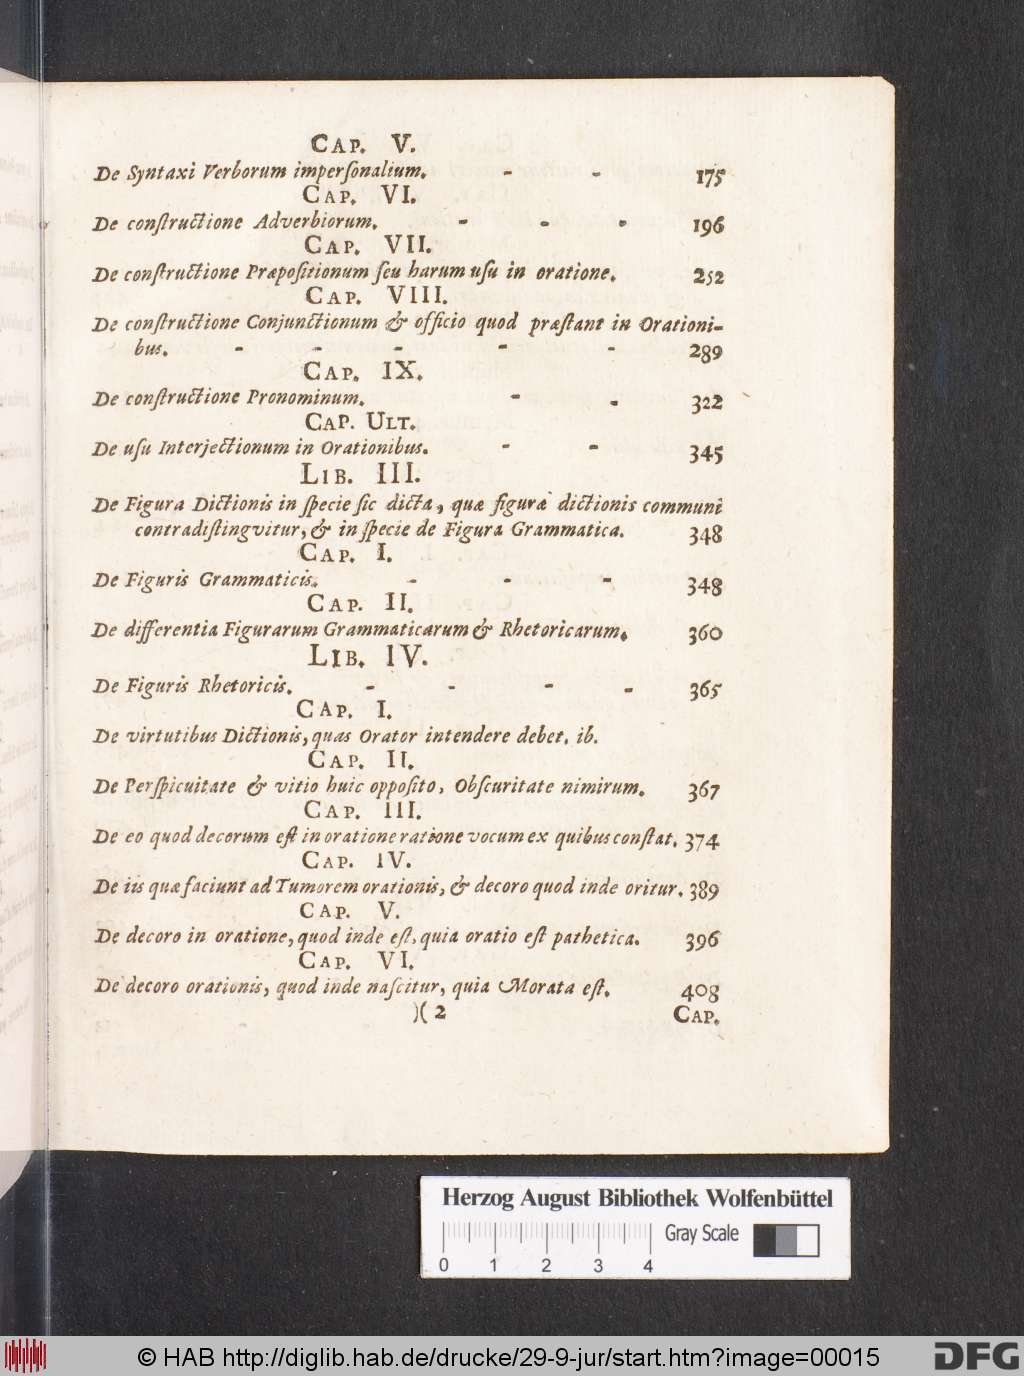 CAP. V.
De Syntaxi Verborum imperſonalium. - - 175
CAP. VI.
De conſtructione Adverbiorum. - - - 196
CAP. VII.
De conſtructione Præpoſitionum ſeu harum uſu in oratione. 252
CAP. VIII.
De conſtructione Conjunctionum & officio quod præſtant in Orationi-
bus. - - - - - 289
CAP. IX.
De conſtructione Pronominum. - - 322
CAP. ULT.
De uſu Interjectionum in Orationibus. - - 345
LIB. III.
De Figura Dictionis in ſpecie ſic dicta, quæ figuræ dictionis communi
contradiſtingvitur, & in ſpecie de Figura Grammatica. 348
CAP. I.
De Figuris Grammaticis. - - - 348
CAP. II.
De differentia Figurarum Grammaticarum & Rhetoricarum. 360
LIB. IV.
De Figuris Rhetoricis. - - - - 365
CAP. I.
De virtutibus Dictionis, quas Orator intendere debet. ib.
CAP. II.
De Perſpicuitate & vitio huic oppoſito, Obſcuritate nimirum. 367
CAP. III.
De eo quod decorum eſt in oratione ratione vocum ex quibus conſtat. 374
CAP. IV.
De iis quæ faciunt ad Tumorem orationis, & decoro quod inde oritur. 389
CAP. V.
De decoro in oratione, quod inde eſt, quia oratio eſt pathetica. 396
CAP. VI.
De decoro orationis, quod inde naſcitur, quia Morata eſt. 408
)( 2 CAP.
Herzog August Bibliothek Wolfenbüttel
Gray Scale
0 1 2 3 4
© HAB http://diglib.hab.de/drucke/29-9-jur/start.htm?image=00015
DFG